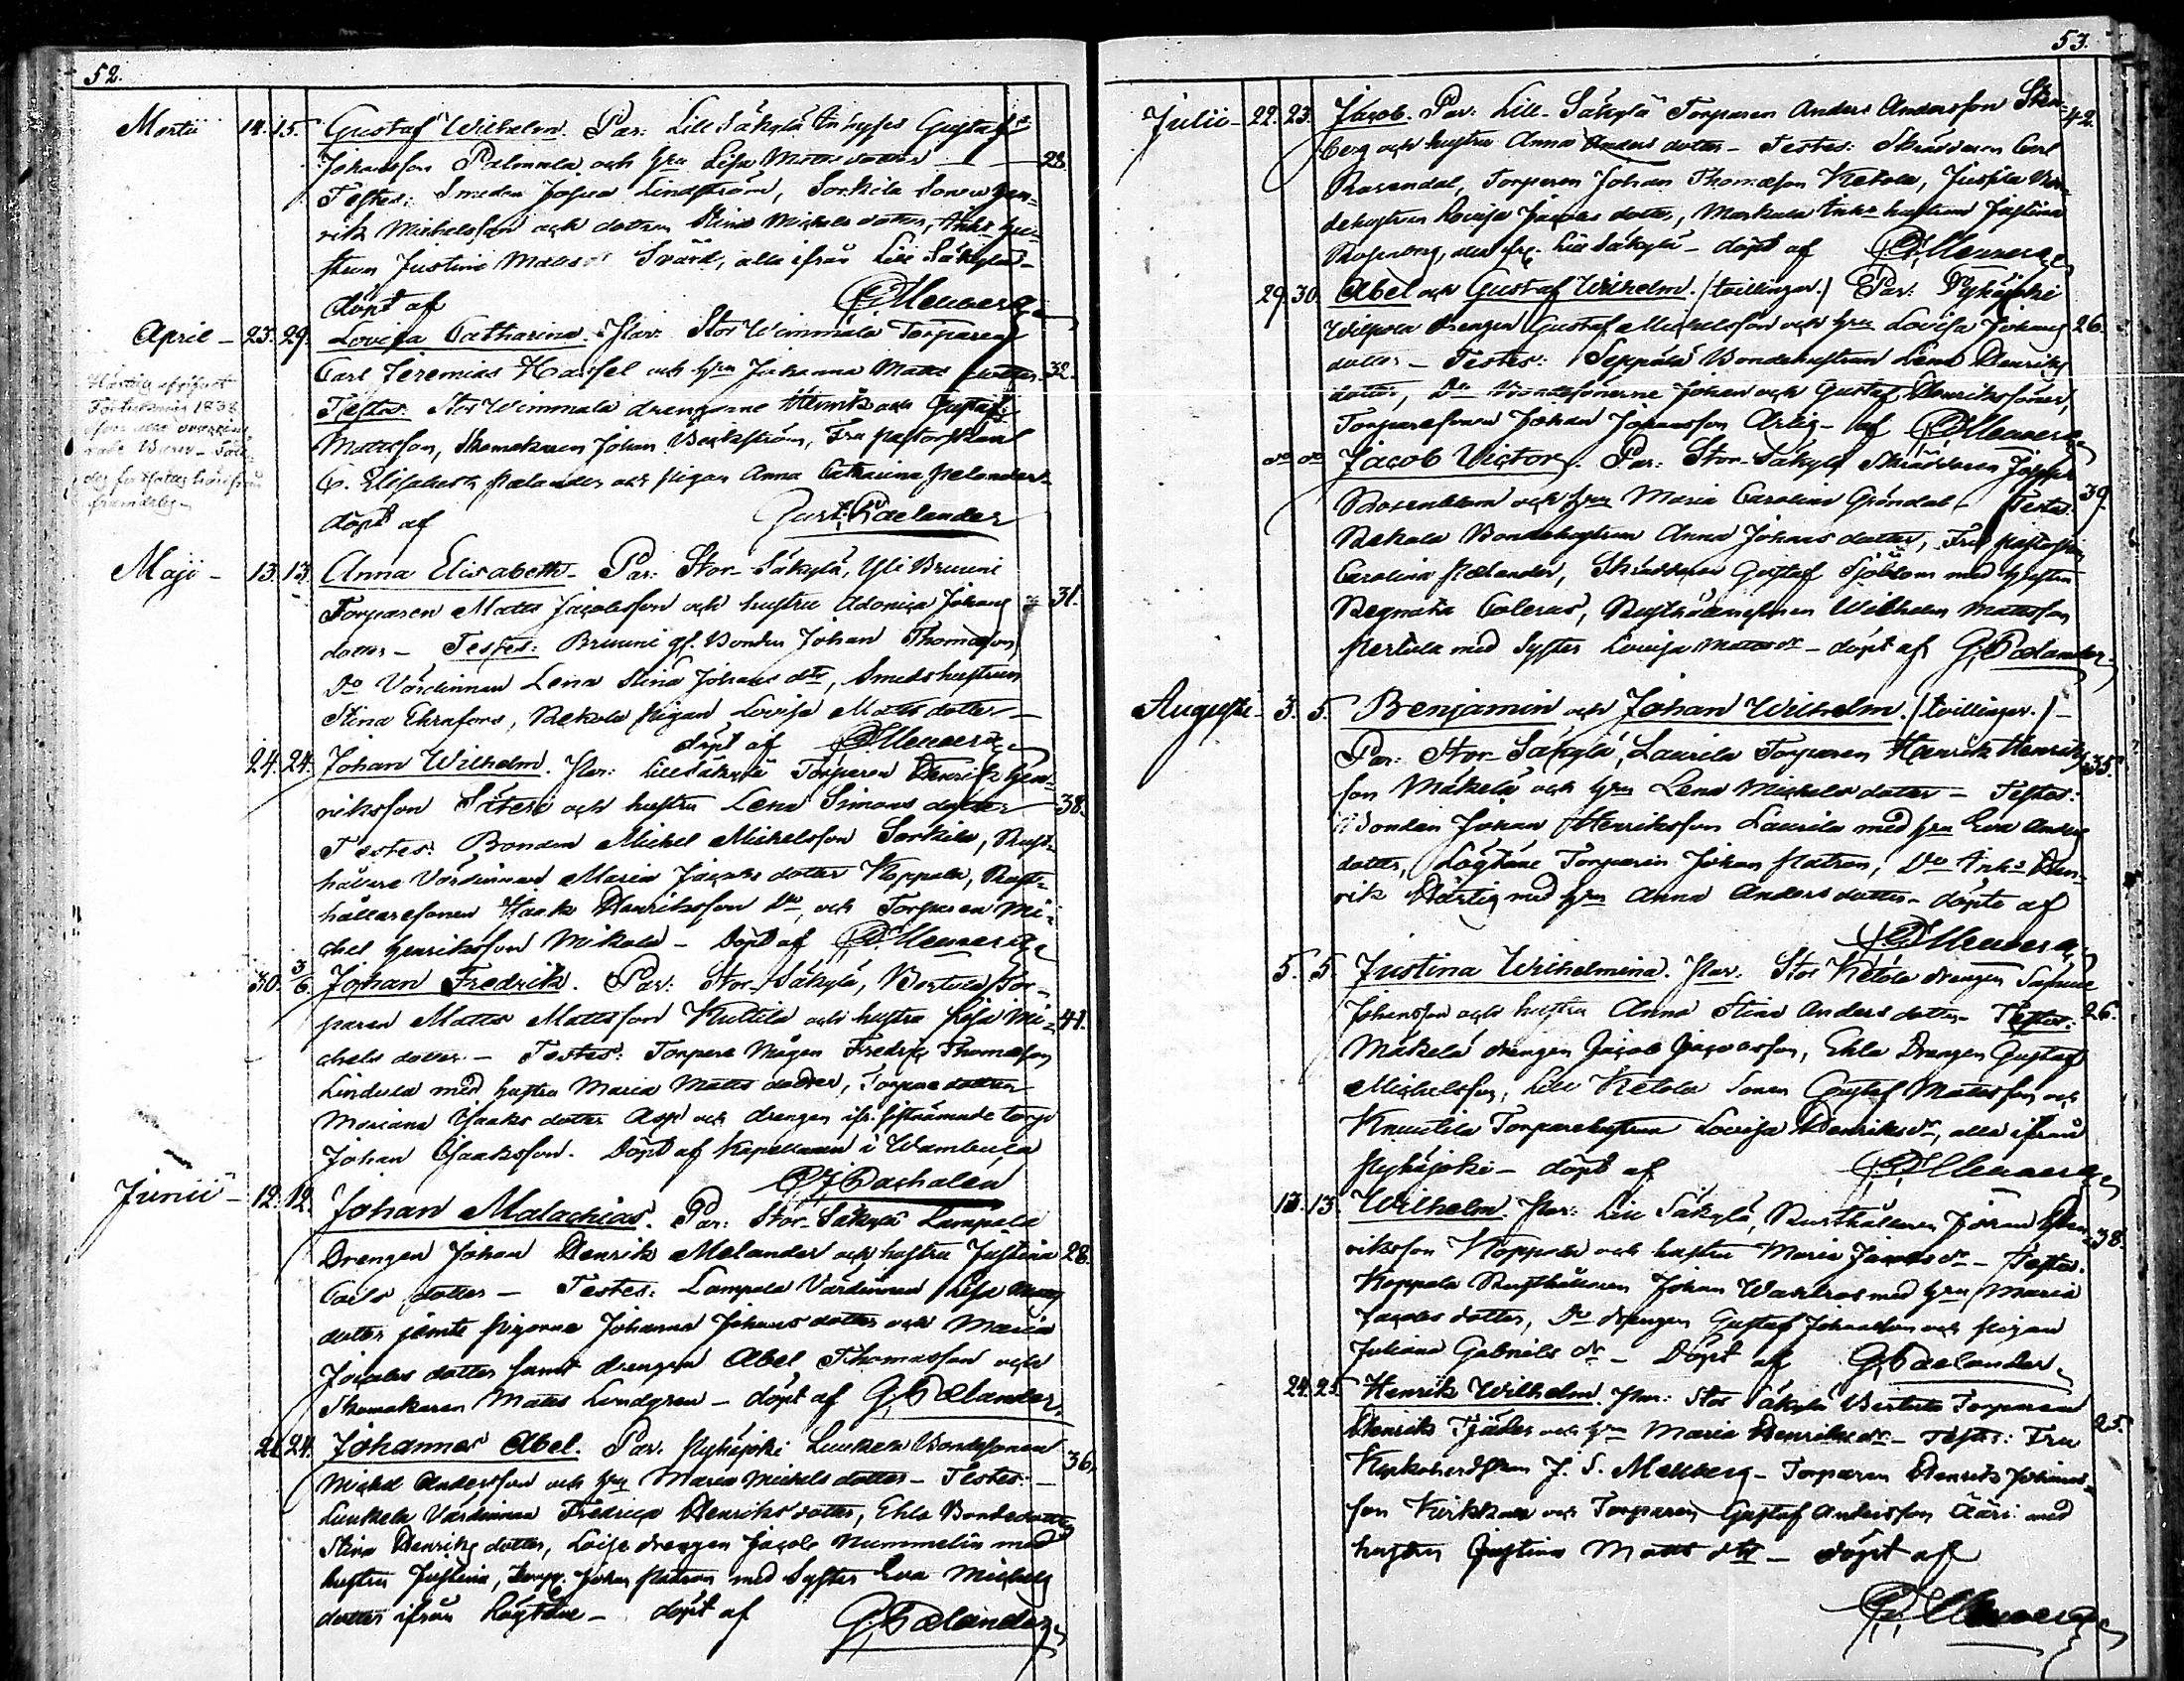 52.
Martii 14. 15. Gustaf Wilhelm. Par: Lill Säkylä Gustaf
Johansson Palomala och hru Lisa Matts dotter 28.
Testes: Smeden Josua Lindström, Sorkila Sonen Hen-
rik Michelsson och dottren Stina Michels dotter, Enke hu-
strun Justina Matts Svärd, alla ifrån Lill Säkylä
döpt af
April 23. 29. Lovisa Catharina. Par: Stor Wimmala Torparen
Carl Jeremias Hassel och hru Johanna Matts dotter 32.
Testes: Stor Wimmala drengarne Henrik och Gustaf
Mattsson, Skomakaren Johan Beckström, Fru Pastorskan
C. Elisabeth Pælander och Pigan Anna Catharina Pelander
döpt af Gust. Pælander
1838
framdeles
Maji 13. 13. Anna Elisabeth. Par: Stor-Säkylä, Yli Bruuni
Torparen Matts Jacobsson och hustru Adonica Johans 31.
dotter - Testes: Bruuni gl. Bonden Johan Thomasson
Do Värdinnan Lena Stina Johans dtr, Smedshustrun
Stina Ehrnfors, Rekola Pigan Lovisa Matts dotter
döpt af
24. 24. Johan Wilhelm. Par: Lill Säkylä Torparen Henrik Hen-
riksson Säteri och hustru Lena Simons dotter 38.
Testes: Bonden Michel Michelsson Sorkila, Rust-
hållare Värdinnan Maria Jacobs dotter Koppala, Rust-
hållaresonen Isaak Henriksson Do, och Torparen Mi-
chel Henriksson Mikola - Döpt af
30. 3/6. Johan Fredrik. Par: Stor-Säkylä, Tor-
paren Matts Mattsson Kuttila och hustru Caisa Mi- 41.
chels dotter - Testes: Torpare Mågen Fredric Thomasson
Lindula med hustru Maria Matts dotter, Torparedottren
Mariana Isaaks dotter Asp och drengen ifr. sistnämnde torp
Johan Isaaksson. Döpt af Kapellanen i Wambula
Junii 12. 12. Johan Malachias. Par: Stor-Säkylä Lampala
Drengen Johan Henrik Melander och hustru Justina 28.
Carls dotter - Testes: Lampala Värdinnan Lisa
dotter jämte pigorna Johanna Johans dotter och Maria
Jacobs dotter samt drengen Abel Thomasson och
Skomakaren Matts Lundgren - döpt af G. Pælander.
24. Johannes Abel. Par: Pyhäjoki Luukela Bondesonen
Michel Andersson och hru Maria Michels dotter - Testes: 36.
Luukela Värdinnan Fredrica Henriks dotter, Ehla Bondedotter
Stina Henriks dotter, drengen Jacob Nummelin med
hustru Justina, Torp. Johan med Syster Eva Michels
dotter ifrån Löytäne - döpt af G. Pælander
53.
Julii 22. 23. Jacob. Par: Lill-Säkylä Torparen Anders Andersson 42.
berg och hustru Anna Anders dotter - Testes: Skräddaren Carl
Rosendal, Torparen Johan Thomasson Ketola, Jussila Bon-
dehustrun Lovisa Jacobs dotter, Enke hustrun Justina
Rosenberg, alla fr. Lill Säkylä - döpt af
29. 30. Abel och Gustaf Wilhelm. (tvillingar.) Par: Pyhäjoki
drengen Gustaf Michelsson och hru Lovisa Johans 26.
dotter - Testes: Seppälä Bondehustrun Lena Henriks
dotter, Do Bondesönerne Johan och Gustaf Henrikssöner,
Torparesonen Johan Johansson Ärlig - af
do do Jacob Victor. Par: Stor-Säkylä Skräddaren
Rosenblom och hru Maria Carolina Gröndal - Testes: 39.
Rekola Bondehustrun Anna Johans dotter, Fru Pastorskan
Carolina Pælander, Skräddaren Gustaf Sjöblom med hustru
Regnata Coleras, Rusthållaresonen Wilhelm Mattsson
Pertula med Syster Lovisa Matts dr - döpt af G. Pælander
Augusti 3. 5. Benjamin och Johan Wilhelm. (tvillingar.)
Par: Stor-Säkylä, Laurila Torparen Henrik Henriks- 35.
son Mäkelä och hru Lena Michels dotter - Testes:
Bonden Johan Henriksson Laurila med hru Eva Anders
dotter, Löytäne Torparen Johan, Do Enk. Hen-
rik Härtig med hru Anna Anders dotter - döpte af
5. 5. Justina Wilhelmina. Par: Stor Ketola drengen Samuel
Johansson och hustru Anna Stina Anders dotter - Testes: 26.
Mäkelä drengen Jacob Jacobsson, Ehla Drengen Gustaf
Michelsson, Lill Ketola Sonen Gustaf Mattsson och
Knuutila Torparehustrun Lovisa Henriks dr, alla ifrån
Pyhäjoki - döpt af
13. 13. Wilhelm. Par: Lill Säkylä, Rusthållaren Johan Hen- 38.
riksson Koppala och hustru Maria Jacobs dr - Testes:
Koppala Rusthållaren Johan med hru Maria
Jacobs dotter, Do drengen Gustaf Johansson och Pigan
Juliana Gabriels dr - Döpt af G. Pælander.
24. 25. Henrik Wilhelm. Par: Stor Säkylä Torparen
Henrik Tjäder och hru Maria Henriks dr - Testes: Fru 25.
Kyrkoherdskan J. S. Mellberg - Torparen Henrik Johans-
son och Torparen Gustaf Andersson Ääri med
hustru Justina Matts dtr - döpt af